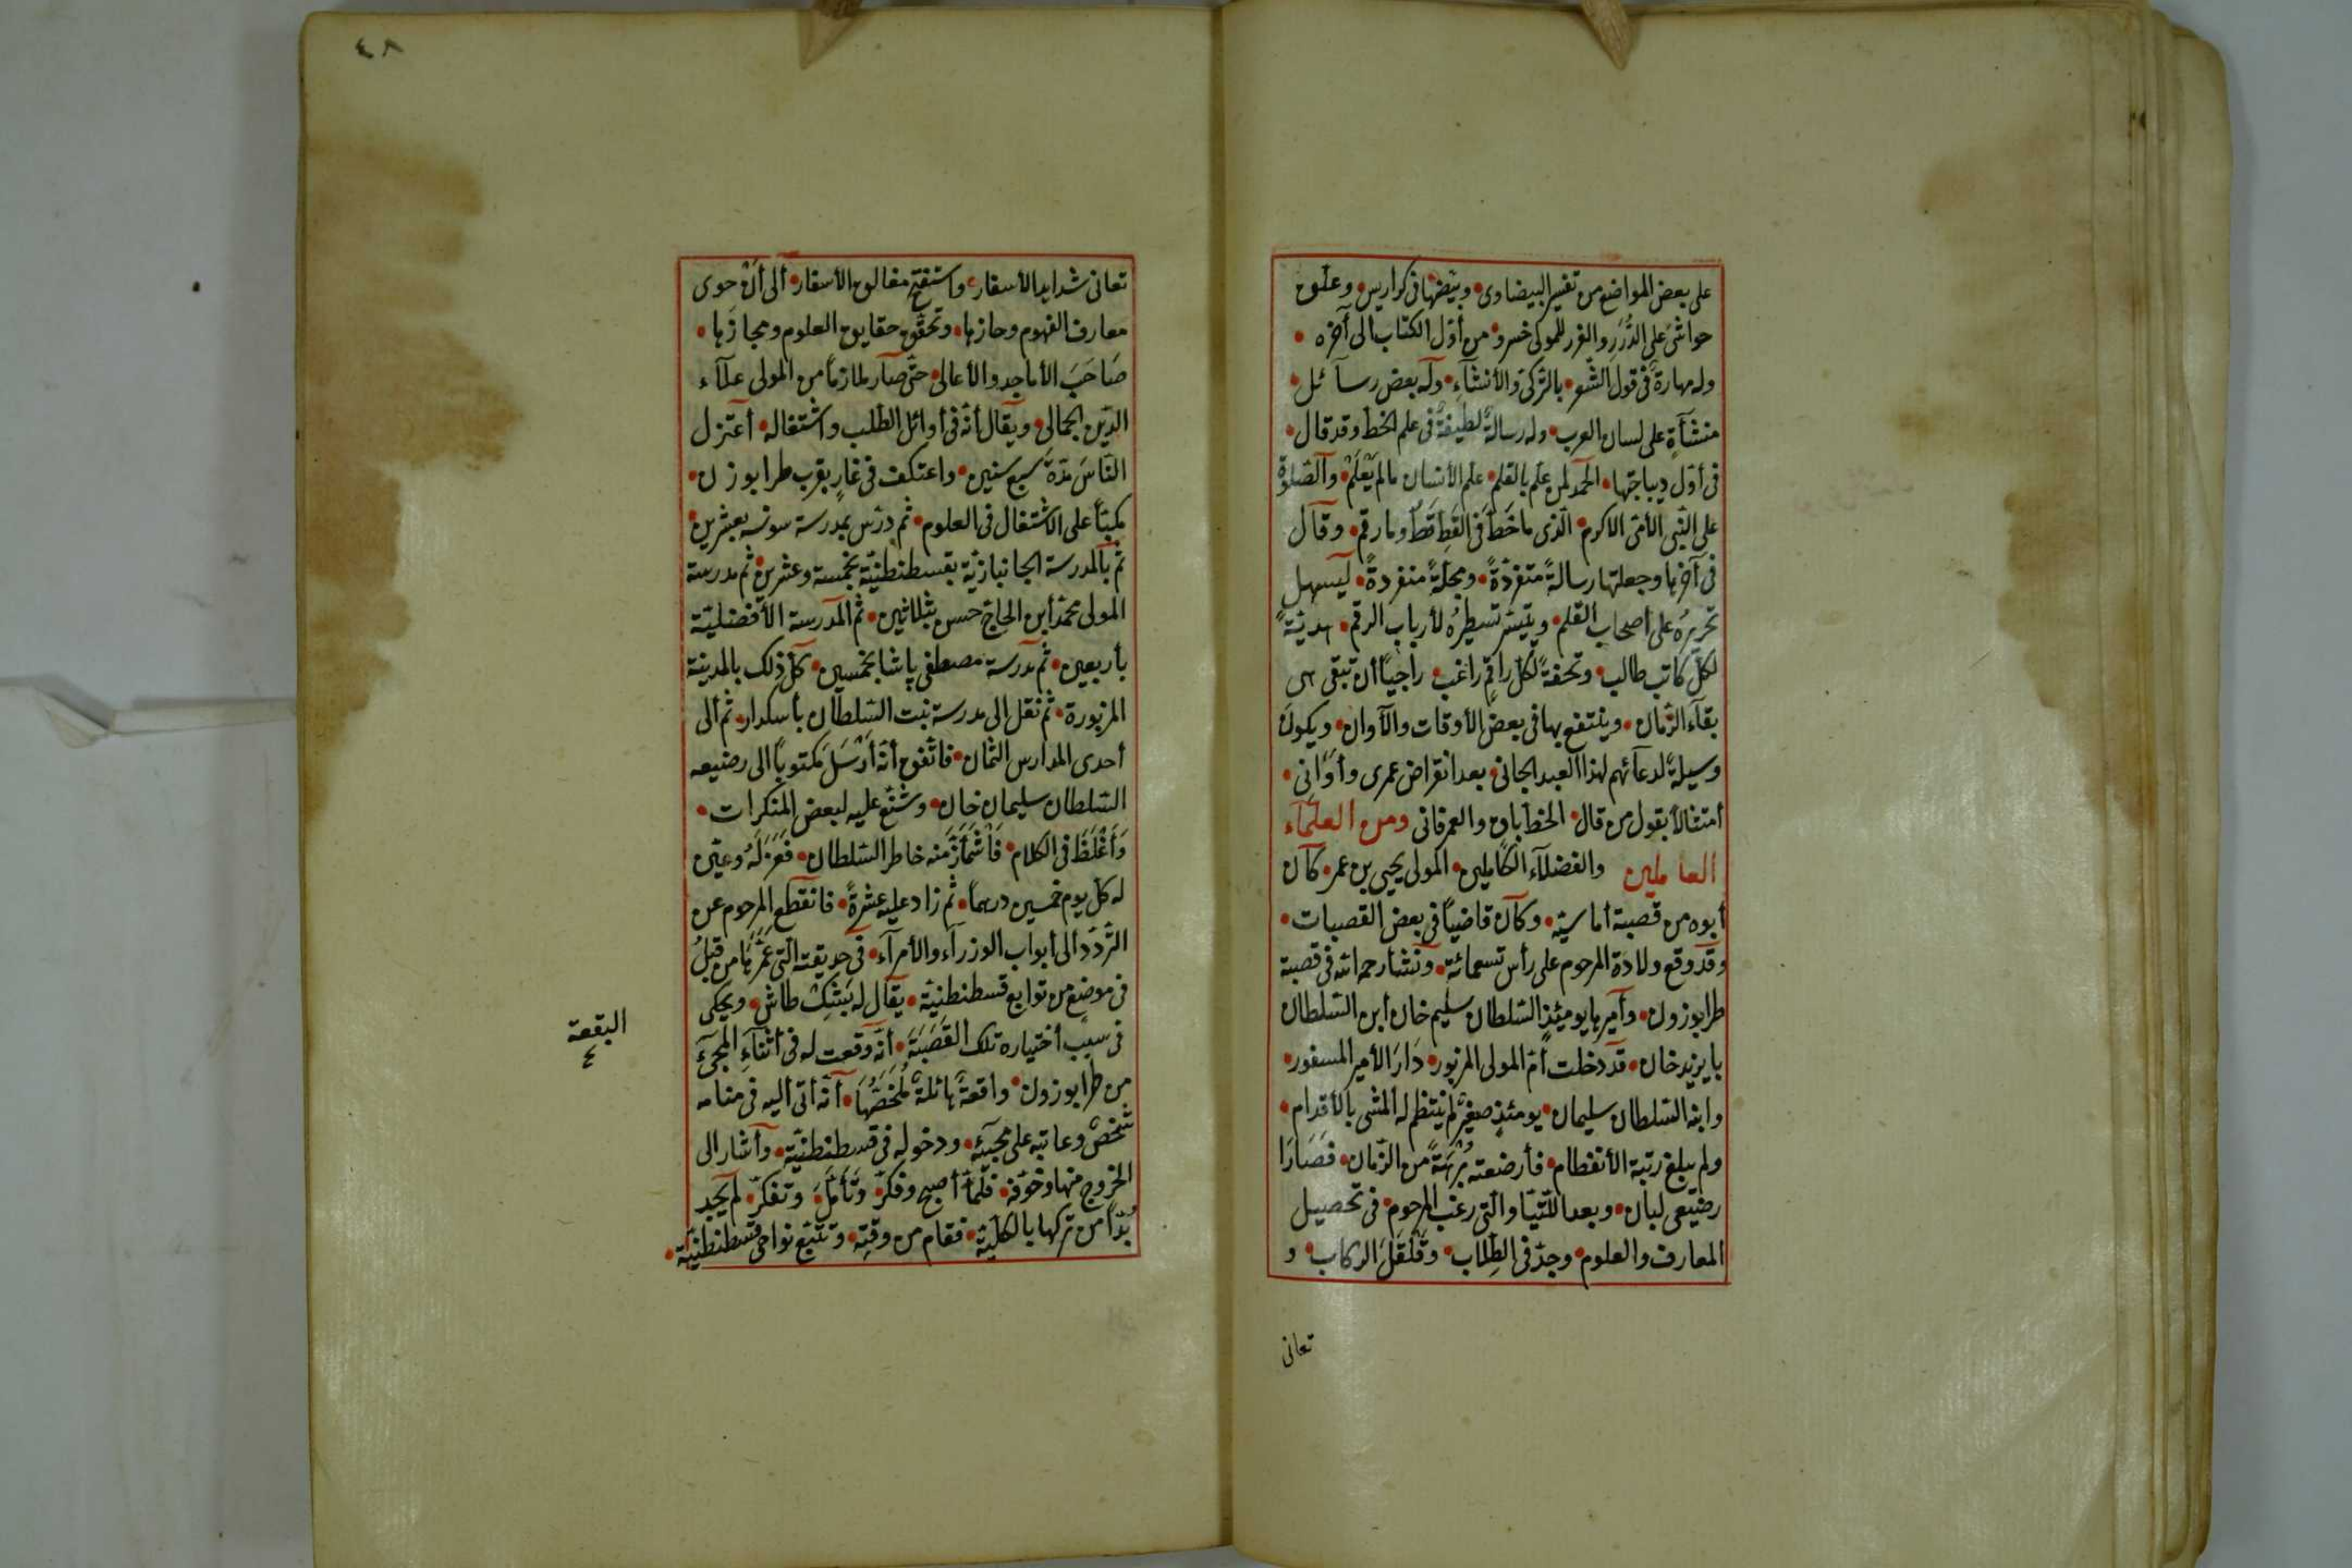 على بعض المواضع من تفسير البيضاوى وبيّضها فى كراريس وعلّق
حواشى على الدُّرَرِ والغرر للمولى خسرو من أوّل الكتاب الى آخره
وله مهارة فى قول الشعر بالتركى والأنشآء وله بعض رسآئل
منشأةٍ على لسان العرب وله رسالةٌ لطيفةٌ فى علم الخط وقد قال
فى أوّل ديباجتها الحمد لمن علّم بالقلم علّم الأنسان مالم يَعْلَمْ والصّلوة
على النّبى الأمّى الاكرم الّذى ما خَطَّ فى القِطِ قَطُّ وما رقم وقال
فى آخرها وجعلتها رسالةً متفرّدةً ومجلّةً منفردةً ليسهل
تحريرُه على أصحاب القلم ويتيسّر تسطيرُه لأرباب الرقم هديّةً
لكلّ كاتب طالب وتحفةً لكلّ راقمٍ راغب راجيًا أن تبقى هى
بقآء الزّمان وينتفع بها فى بعض الأوقات والآوان ويكون
وسيلةً لدعآئهم لهذا العبد الجانى بعد انقراض عمرى وأوانى
أمتثالاً بقول من قال الخط باق والعمر فانى ومن العلمآء
العاملين والفضلآء الكاملين المولى يحيى بن عمر كان
أبوه من قصبة أماسيّه وكان قاضيًا فى بعض القصبات
وقد وقع ولادة المرحوم على رأس تسعمائة ونشأ رحمه الله فى قصبة
طرابوزون وأميرها يومئذٍ السّلطان سليم خان أبن السّلطان
بايزيد خان قد دخلت أمّ المولى المزبور دَارَ الأمير المسفور
وابنه السّلطان سليمان يومئذٍ صغيرٌ لم ينتظم له المشى بالأقدام
ولم يبلغ رتبة الأنفطام فأرضعته بُرْهَةً من الزّمان فصَارَا
رضيعَى لبان وبعد اللّتيّا والّتى رغب المرحوم فى تحصيل
المعارف والعلوم وجدّ فى الطِلاب وقَلْقَلَ الركاب و
تعانى
٤٨
تعانى شدايد الأسفار واستفتح مغالق الأسفار ألى أن حوى
معارف الفهوم وحازها وتحقّق حقايق العلوم ومجازَها
صَاحَبَ الأماجد والأعالى حتّى صار ملازماً من المولى علآء
الدّين الجمالى ويقال أنّه فى أوائل الطّلب واشتغاله أعتزل
النّاسَ مدّةَ سبع سنين واعتكف فى غارٍ بقرب طرابوزن
مكبّاً على الاشتغال فى العلوم ثم درّس بمدرسة سونسه بعشرين
ثم بالمدرسة الجانبازيّة بقسطنطنيّة بخمسة وعشرين ثم مدرسة
المولى محمّد أبن الحاجّ حسن بثلاثين ثم المدرسة الأفضليّة
بأربعين ثم مدرسة مصطفى پاشا بخمسين كلّ ذلك بالمدينة
المزبورة ثم نقل الى مدرسة بنت السّلطان بأسكدار ثم الى
أحدى المدارس الثّمان فاتّفق أنّه أَرْسَلَ مكتوباً الى رضيعه
السّلطان سليمان خان وشنّع عليه لبعض المنكرات
وَأَغْلَظَ فى الكلام فَاشْمَأَزَّ منه خاطر السّلطان فعَزَلَهُ وعيّن
له كلّ يوم خمسين درهماً ثم زاد عليه عشرةً فانقطع المرحوم عن
التّردّد ألى أبواب الوزرآء والأمرآء فى حديقته الّتى عَمَّرَهَا من قبلُ
فى موضع من توابع قسطنطنيّة يقال له بَشِكْ طاش ويحكى
فى سبب أختياره تلك القَصَبَةَ أنّه وقعت له فى أثنآء المجئ
من طرابوزون واقعةٌ هائلةٌ مُلَخَّصُهَا أنّه أتى أليه فى منامه
شخصٌ وعاتبه على مجيئه ودخوله فى قسطنطنيّة وأشار الى
الخروج منها وخوّفه فلمّا أصبح وفكّر وتأمّل وتفكّر لم يجد
بُدّاً من تركها بالكليّة فقام من وقته وتتبّع نواحى قسطنطنيّة
البقعة
٤